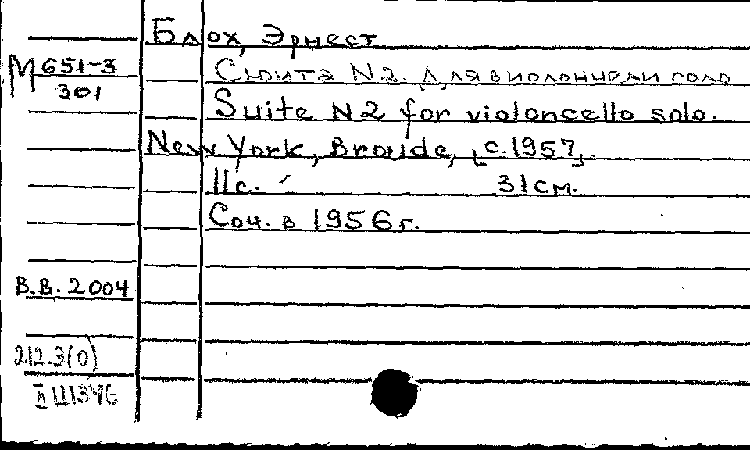 Блох, Эрнест
М 651-3
301
Сюита N2. Для виолончели соло
Suite N2 for violoncello solo.
New York, Broude, [c.1957].
11с. 31см.
Соч. в 1956г.
В.Б. 2004
212.3(0)